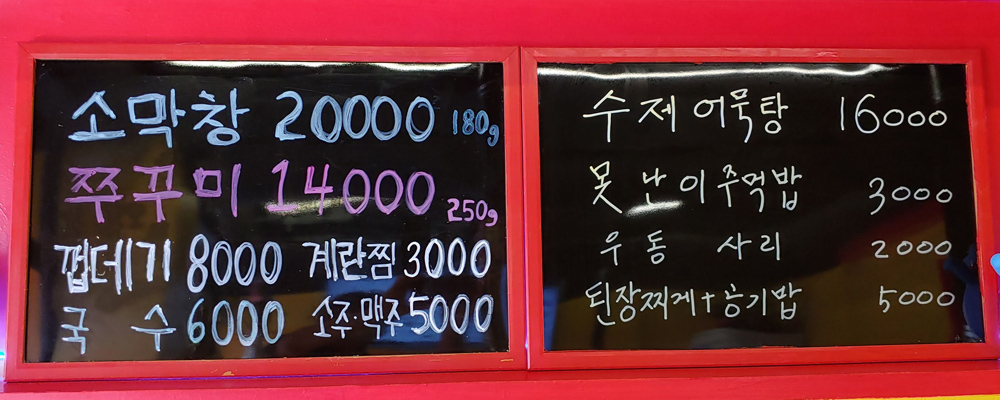 소막창 20000 180g
쭈꾸미 14000 250g
껍데기 8000 계란찜 3000
국 수 6000 소주·맥주 5000
수제 어묵탕 16000
못난이주먹밥 3000
우동 사리 2000
된장찌게+공기밥 5000